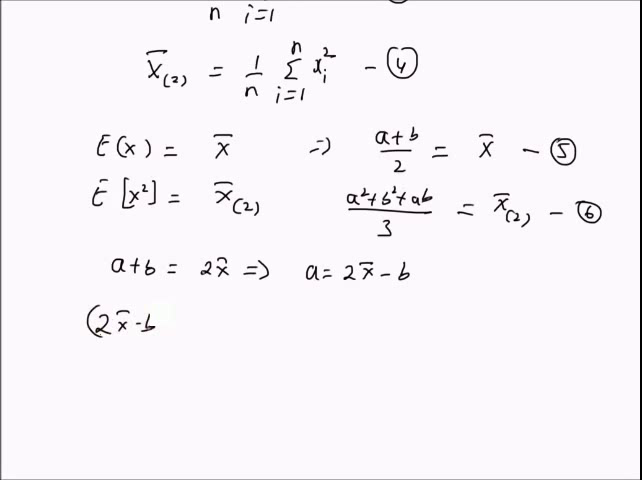 n i=1
x̄₍₂₎ = 1/n Σ_{i=1}^{n} xᵢ² - ④
E(x) = x̄ => a+b/2 = x̄ - ⑤
E[x²] = x̄₍₂₎ a²+b²+ab/3 = x̄₍₂₎ - ⑥
a+b = 2x̄ => a = 2x̄ - b
(2x̄ - b